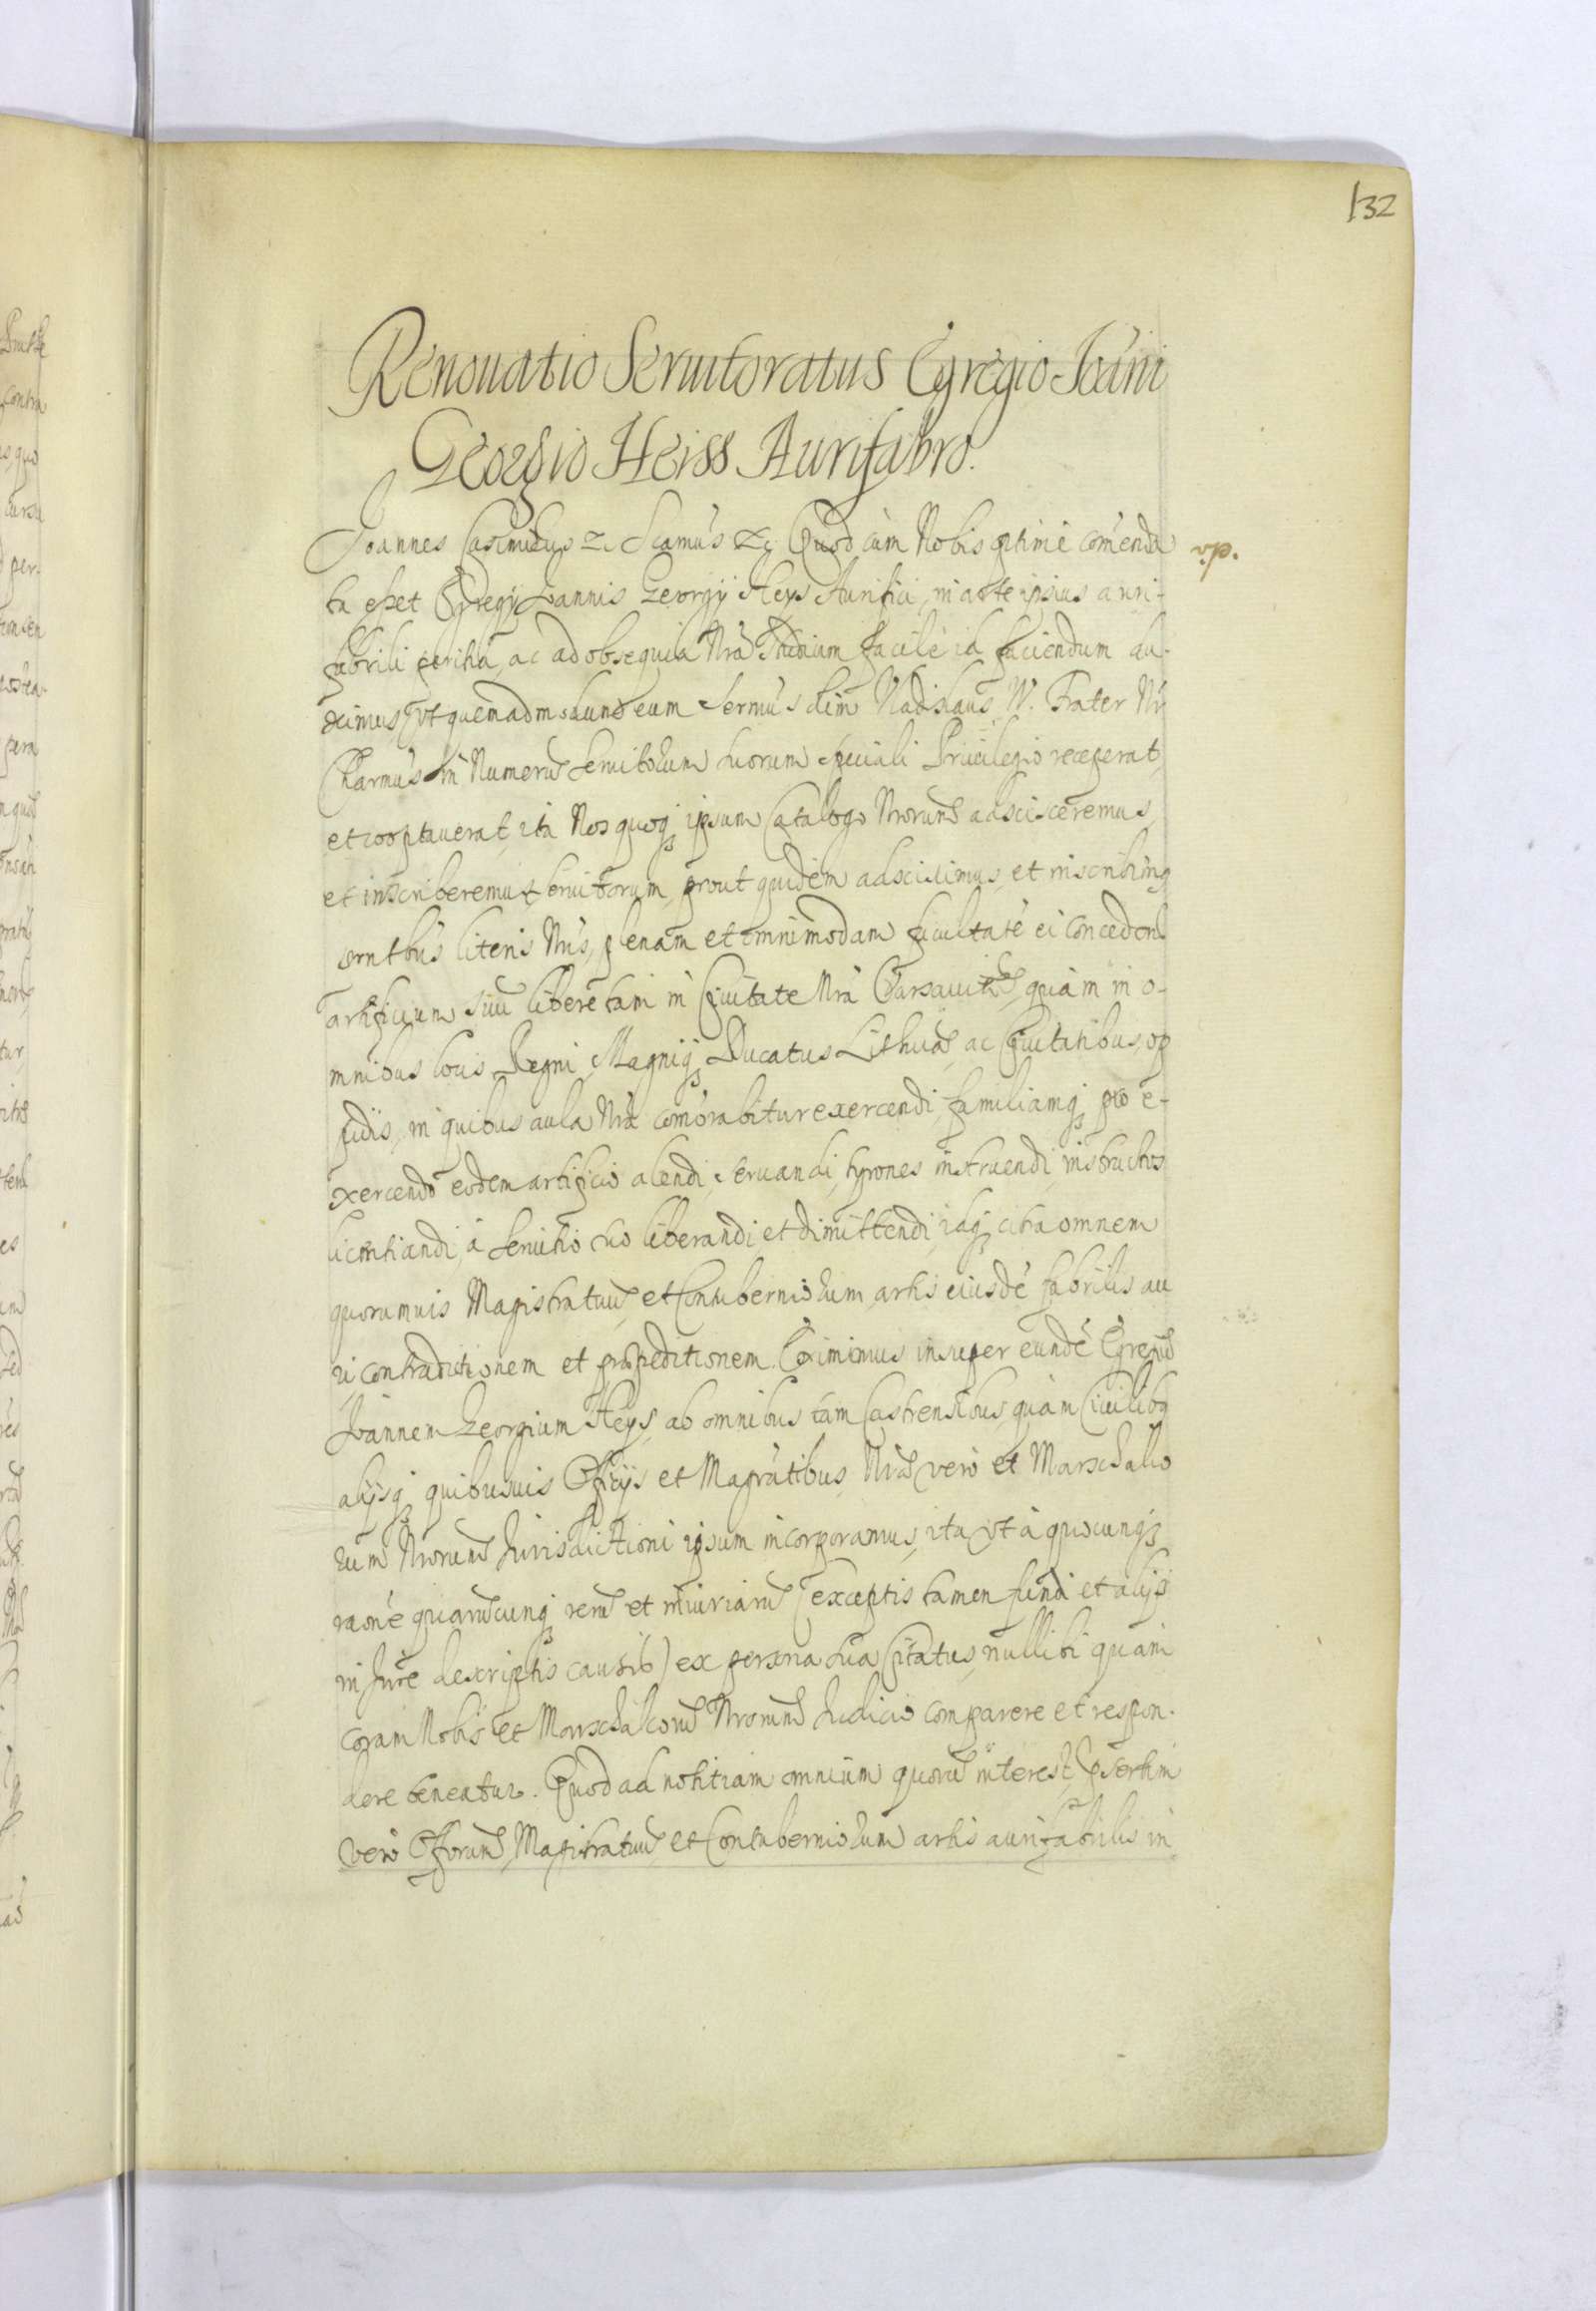 132
Renouatio Seruitoratus Egregio Ioāni
Georgio Heiss Aurifabro.
Joannes Casimirus &c Scamus &c Quod cùm Nobis optimè comēnda v.p.
ta esset Egregij Ioannis Georgij Heys Aurifici, in arte ipsius auri-
fabrili peritia, ac ad obsequia Nrā Studium facilè id faciendum du-
ximus, vt quemadmodum eum Sermus olim Vladislaus IV. Frater Nr
Charmus in Numerū Seruitorum suorum speciali Priuilegio receperat,
et cooptauerat, ita Nos quoq ipsum Catalogo Nrorum adscisceremus,
et inscriberemus seruitorum, prout quidem adsciuimus, et inscribimq
prntbus literis Nris, plenam et omnimodam facultatē ei conceden
artificium suū liberè tam in Ciuitate Nrā Varsauien, quàm in o-
mnibus locis Regni, Magniq Ducatus Lithua, ac Ciuitatibus, op
pidis, in quibus aula Nrā comorabitur exercendi, familiamq pro e-
xercendo eodem artificio alendi, seruandi, tyrones instruendi, instructos
licentiandi, à seruitio suo liberandi, et dimittendi, idq citra omnem
quorumuis Magistratuū, et Contuberniorum artis eiusdē fabrilis au
ri contradictionem et præpeditionem. Eximimus insuper eundē Egregiū
Ioannem Georgium Heys, ab omnibus tàm Castrensibus, quàm Ciuilibq
alijsq quibusuis Officijs et Magrātibus, Nrā verò et Marschalco
rum Nrorum Jurisdictioni ipsum incorporamus, ita vt à quocunq
raone quarūcunq rerū et iniuriarū (exceptis tamen fundi et alijs
in Jure descriptis causis) ex persona sua Citatus, nullibi quàm
coram Nobis et Marschalcorū Nrorum Judicio comparere et respon-
dere teneatur. Quod ad notitiam omnium quorū interest, psertim
verò Offorum, Magistratuū, et Contuberniorum artis aurifabrilis in